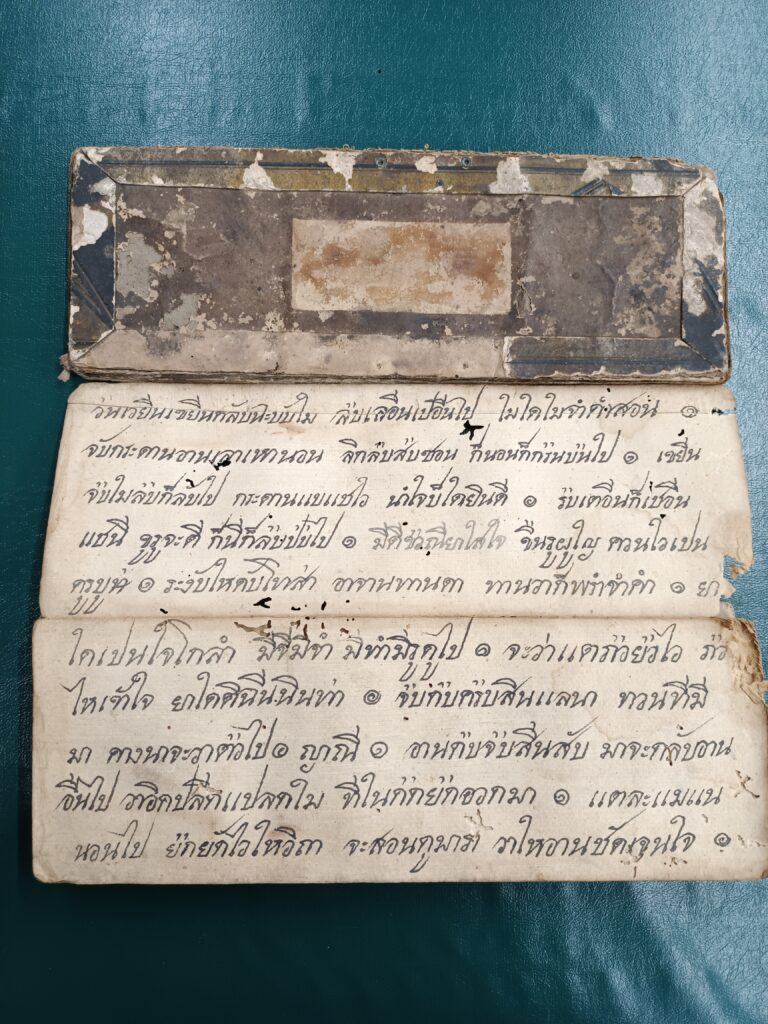 วนเวยีนเซยีนกลับนะบบัใม ลบ่เลอืนเปอืนไป ไมใดใมจำคำสอน ๑
จบักระดานอานเลาเหานอน ลกิลบ่สบ่ซอน กน็อนกก็รน่บน่ไป ๑ เซยีน
จบ่ใมลบ่กล็บ่ไป กระดานแบแชไว นำใจบใดยนิดี ๑ รบ่เตอืนกเ็ชอืน
แชนี จูรูจะตี กน็กีล็ษ่ปบ่ไป ๑ ใสใจ ขนืรูผูใญ ควนไวเปน
ครูบูน ๑ ระงบัใหดบัโทสา อาจานทานดา ทานวากพ็รำซำคำ ๑ ยา
ใดเปนใจโกสำ มชีมีขำ มทีำมรีูดูไป ๑ จะวาแตกว่ยว่ไว กว่
ไหเขาใจ ยาใดตฉินีนนินทา ๑ จบ่กบ่ครบ่สนีแลนา ทวนทมีี
มา คางนาจะวาตว่ไป ๑ ญาณี ๑ อานกบ่จบ่สนีสบั มาจะกลบัอาน
อนืไป วาอดิปลตีแปลกใม ทใีนกก่ยก่ออกมา ๑ แตละแมแน
นอนไป ยก่ยดัไวใหวถิา จะสอนกูมารา วาใหอานชดัเจนใจ ๑